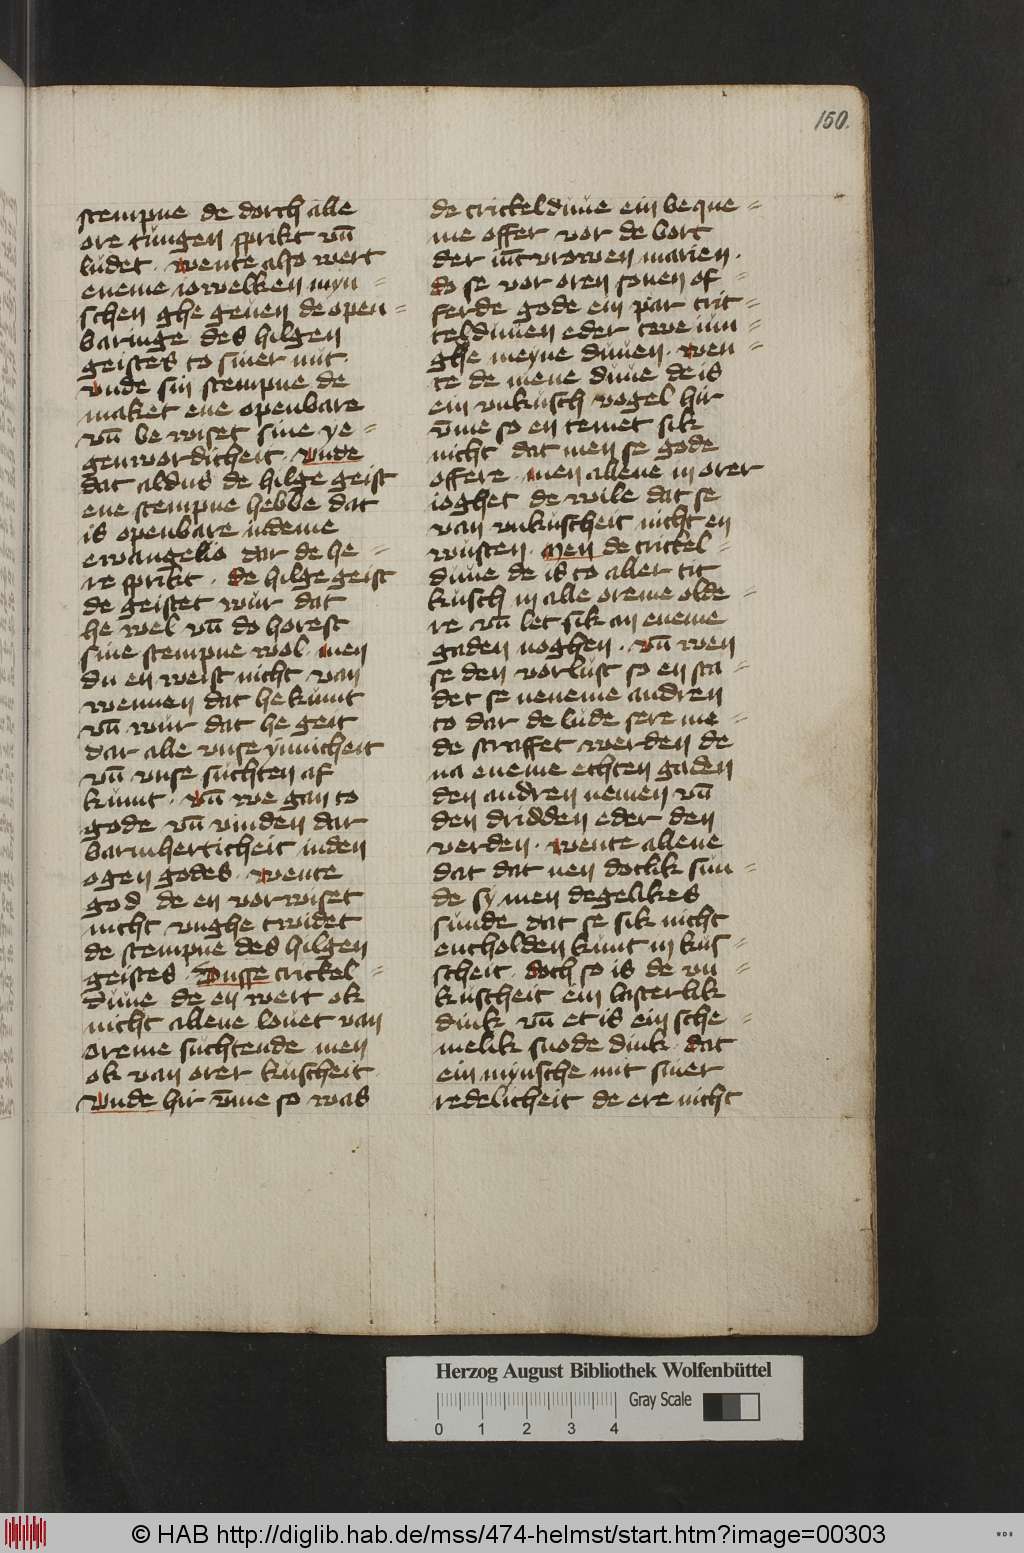 150.
stempne de dorch alle
ore tungen sprikt vn̄
ludet · wente also wert
eneme iowelken myn=
schen ghe geuen de open=
baringe des hilgen
geistes to siner nut·
vnde sin stempne de
maket ene openbare
vn̄ be wiset sine ye=
genwordicheit · vnde
dat aldus de hilge geist
ene stempne hebbe dat
is openbare indeme
ewangelio dar de he=
re sprikt · de hilge geist
de geistet wur dat
he wel vn̄ do horest
sine stempne wol · men
du en weist nicht van
wennen dat he kumt
vn̄ wur dat he geit
dar alle vnse ynnicheit
vn̄ vnse suchten af
kumt · vn̄ we gan to
gode vn̄ vinden dar
barmherticheit inden
ogen godes · wente
god de en vorwiset
nicht vnghe twidet
de stempne des hilgen
geistes · Dusse trickel=
duue de en wert ok
nicht allene louet van
oreme suchtende men
ok van orer kuscheit·
vnde hir v̄me so was
de trickelduue ein beque=
me offer vor de bort
der iūcvrowen marien·
do se vor oren sonen of=
ferde gode ein par tric=
kelduuen eder twe iun=
ghe meyne duuen · wen=
te de mene duue de is
ein vnkusch vogel hir
v̄me so en temet sik
nicht dat men se gode
offere · men allene in orer
ioghet de wile dat se
van vnkuscheit nicht en
wusten · Men de trickel=
duue de is to aller tit
kusch in alle oreme olde=
re vn̄ let sik an eneme
gaden noghen · vn̄ wen
se den vorlust so en sta=
det se neneme andren
to dar de lude sere me=
de straffet werden de
na eneme echten gaden
den andren nemen vn̄
den dridden eder den
verden · wente allene
dat dat nen dotlik sun=
de sy men degelikes
sunde dat se sik nicht
entholden kunt in kus=
scheit · doch so is de vn=
kuscheit ein lasterlik
dink vn̄ et is ein sche=
melik snode dink · dat
ein mynsche mit siner
redelicheit de ere nicht
Herzog August Bibliothek Wolfenbüttel
Gray Scale
0 1 2 3 4
© HAB http://diglib.hab.de/mss/474-helmst/start.htm?image=00303